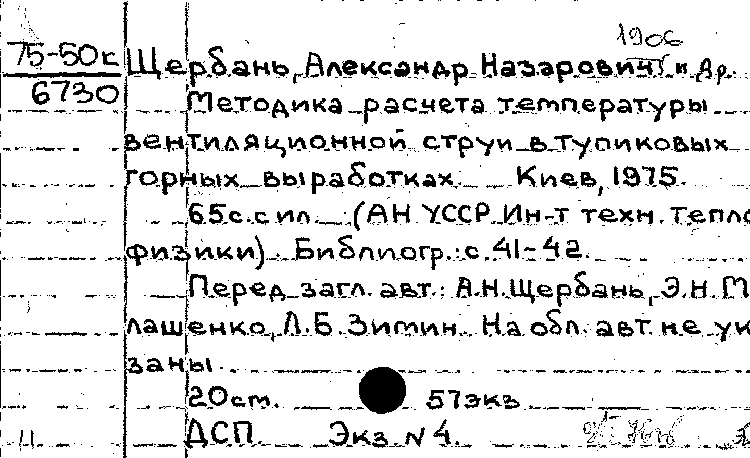 1906
75-50к Щербань, Александр Назарович и др.
6730
Методика расчета температуры
вентиляционной струи в тупиковых
горных выработках. Киев, 1975.
65с. с ил. (АН УССР. Ин-т техн. тепло
физики). Библиогр.: с. 41-42.
Перед загл. авт.: А.Н.Щербань, Э.Н.М
лашенко, Л.Б.Зимин. На обл. авт. не ук
заны.
20см. 57экз.
ДСП. Экз N 4.